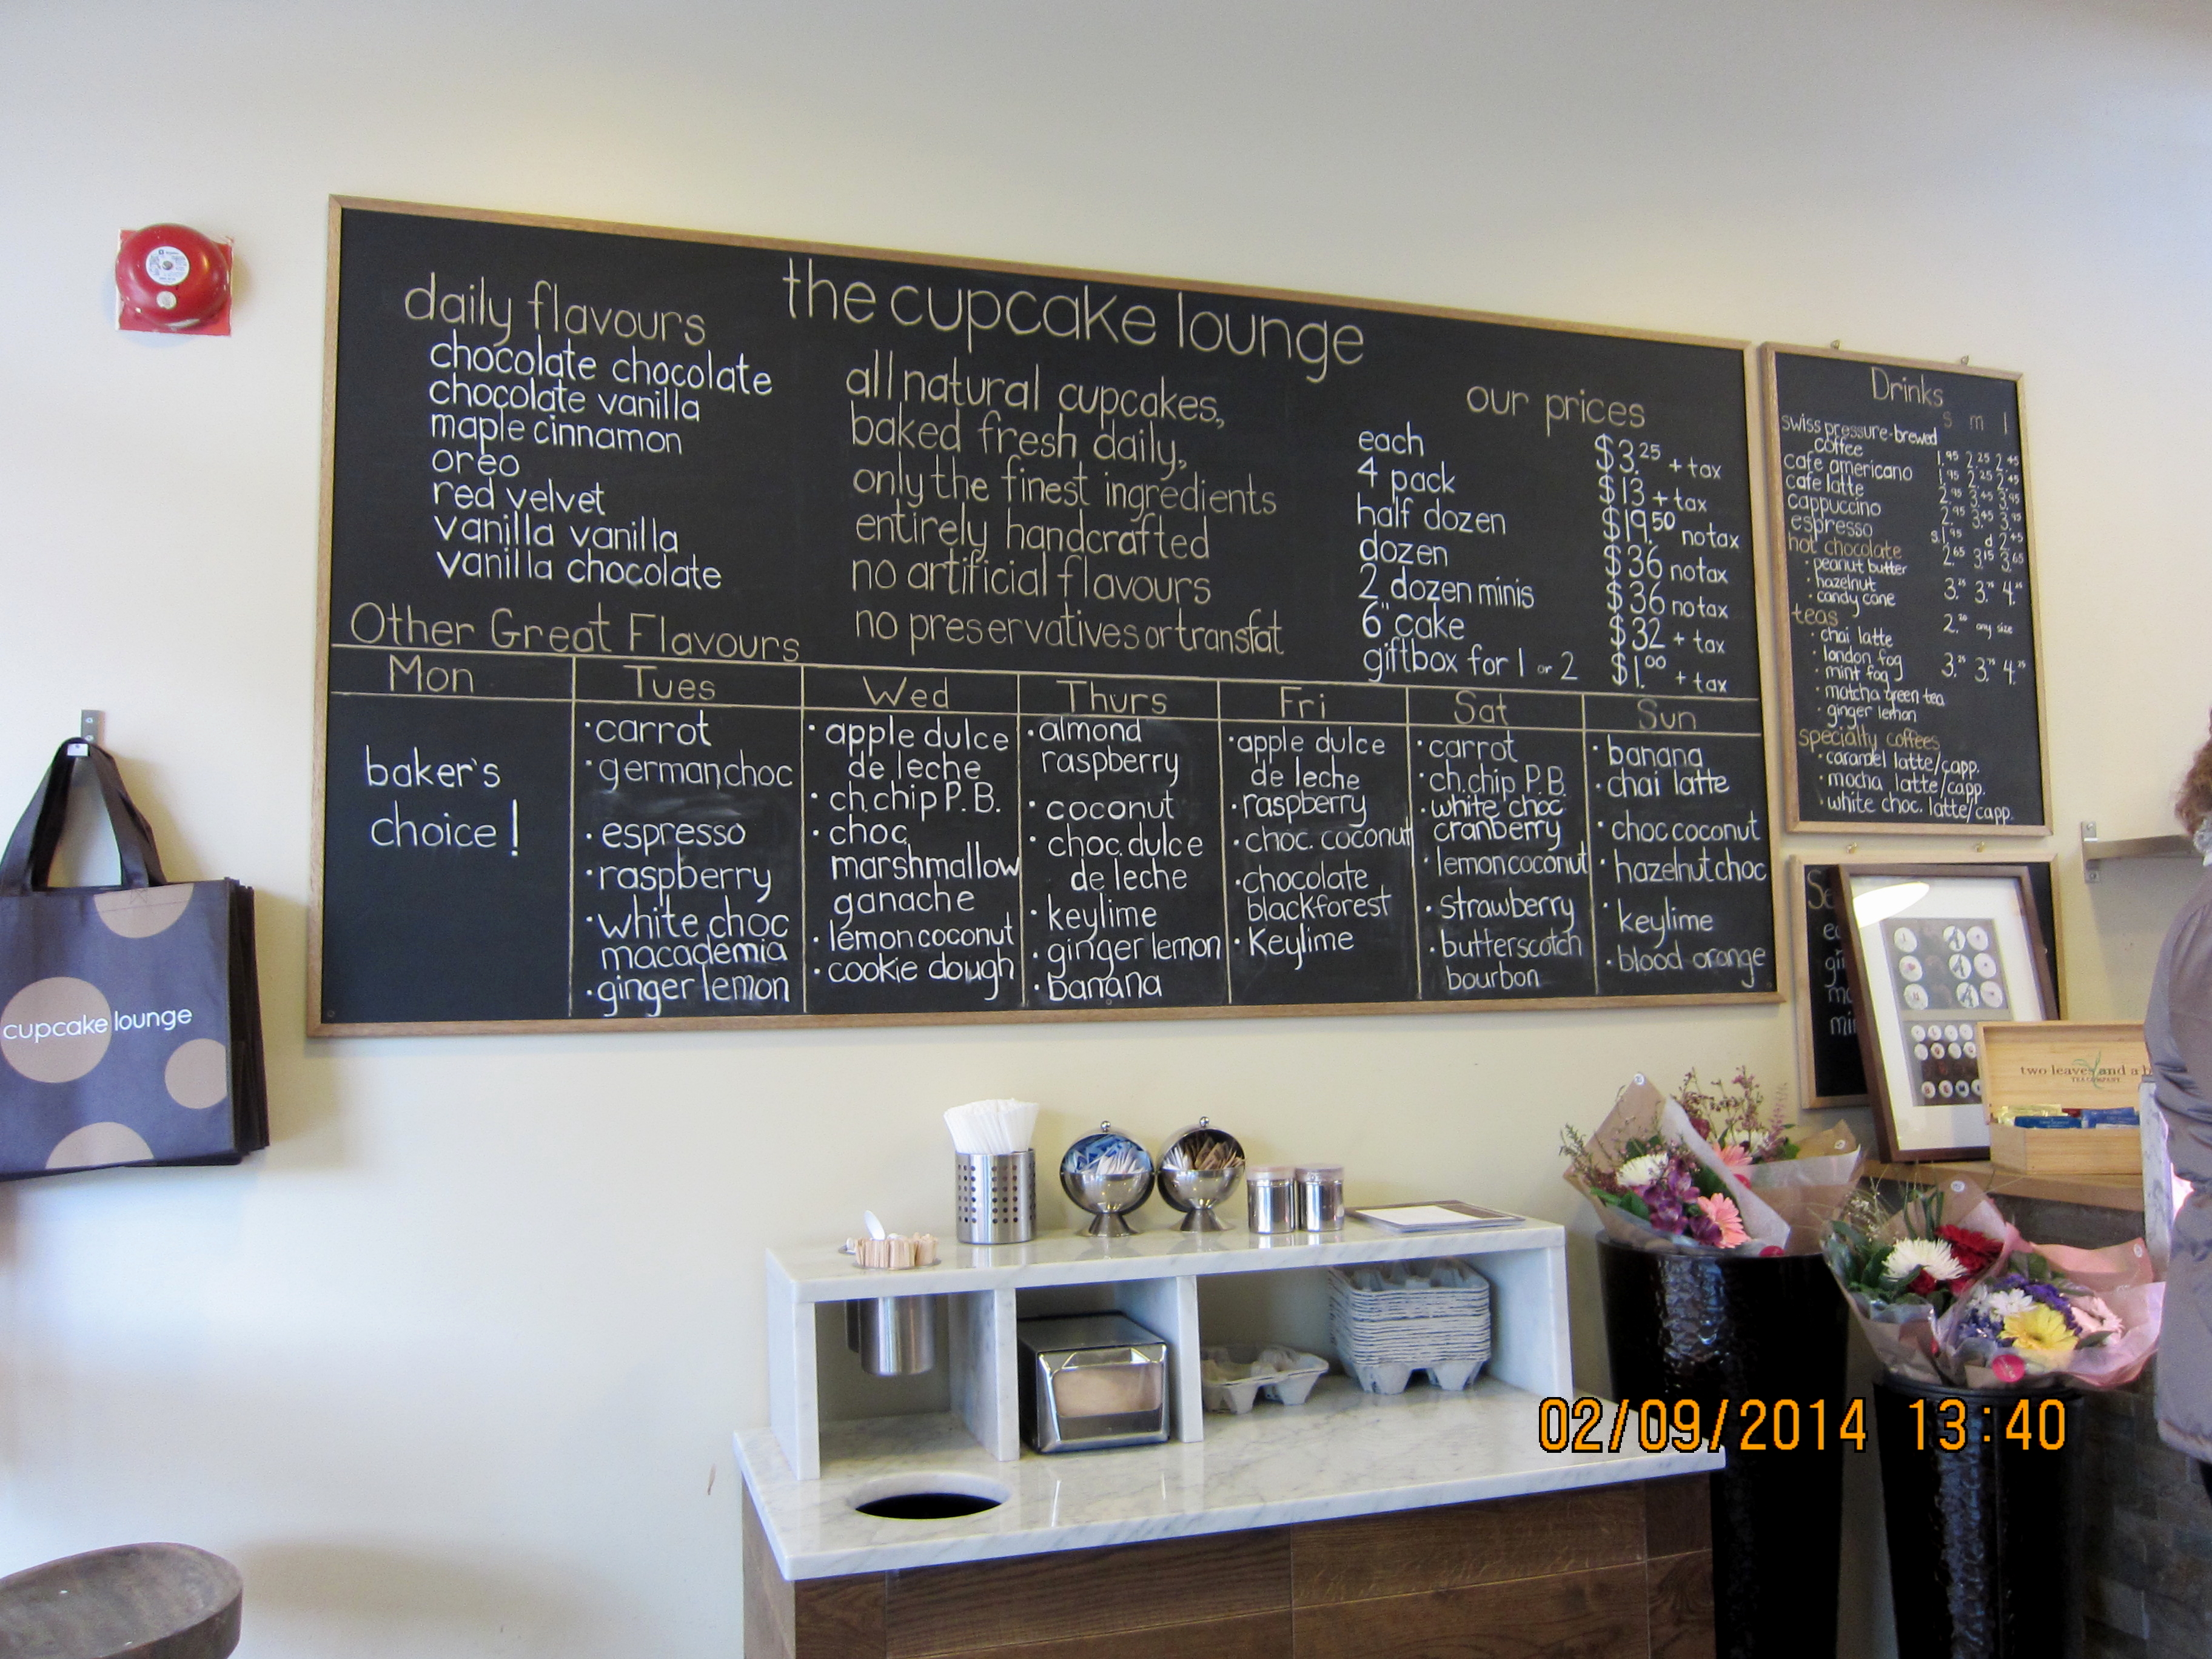 the cupcake lounge
daily flavours
chocolate chocolate
chocolate vanilla
maple cinnamon
oreo
red velvet
vanilla vanilla
vanilla chocolate
all natural cupcakes,
baked fresh daily,
only the finest ingredients
entirely handcrafted
no artificial flavours
no preservatives or transfat
our prices
each $3.25 + tax
4 pack $13 + tax
half dozen $19.50 no tax
dozen $36 no tax
2 dozen minis $36 no tax
6" cake $32 + tax
giftbox for 1 or 2 $1.00 + tax
Other Great Flavours
Mon
baker's
choice!
Tues
· carrot
· german choc
· espresso
· raspberry
· white choc
macademia
· ginger lemon
Wed
· apple dulce
de leche
· ch.chip P.B.
· choc
marshmallow
ganache
· lemon coconut
· cookie dough
Thurs
· almond
raspberry
· coconut
· choc. dulce
de leche
· keylime
· ginger lemon
· banana
Fri
· apple dulce
de leche
· raspberry
· choc. coconut
· chocolate
blackforest
· Keylime
Sat
· carrot
· ch.chip P.B.
· white choc
cranberry
· lemon coconut
· strawberry
· butterscotch
bourbon
Sun
· banana
· chai latte
· choc coconut
· hazelnut choc
· keylime
· blood orange
Drinks
s m l
swiss pressure-brewed
coffee 1.95 2.25 2.45
cafe americano 1.95 2.25 2.45
cafe latte 2.95 3.45 3.95
cappuccino 2.95 3.45 3.95
espresso s 1.95 d 2.45
hot chocolate 2.65 3.15 3.65
· peanut butter
· hazelnut 3. 3. 4.
· candy cane
teas 2. any size
· chai latte
· london fog 3. 3. 4.
· mint fog
· matcha green tea
· ginger lemon
specialty coffees
· caramel latte/capp.
· mocha latte/capp.
· white choc. latte/capp.
cupcake lounge
two leaves and a b
TEA COMPANY
02/09/2014 13:40